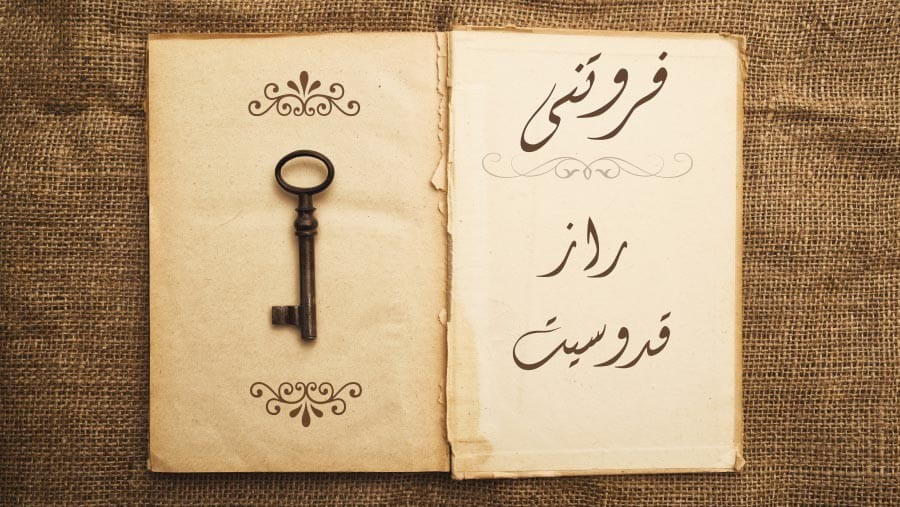 فروتنی
راز
قدوسیت